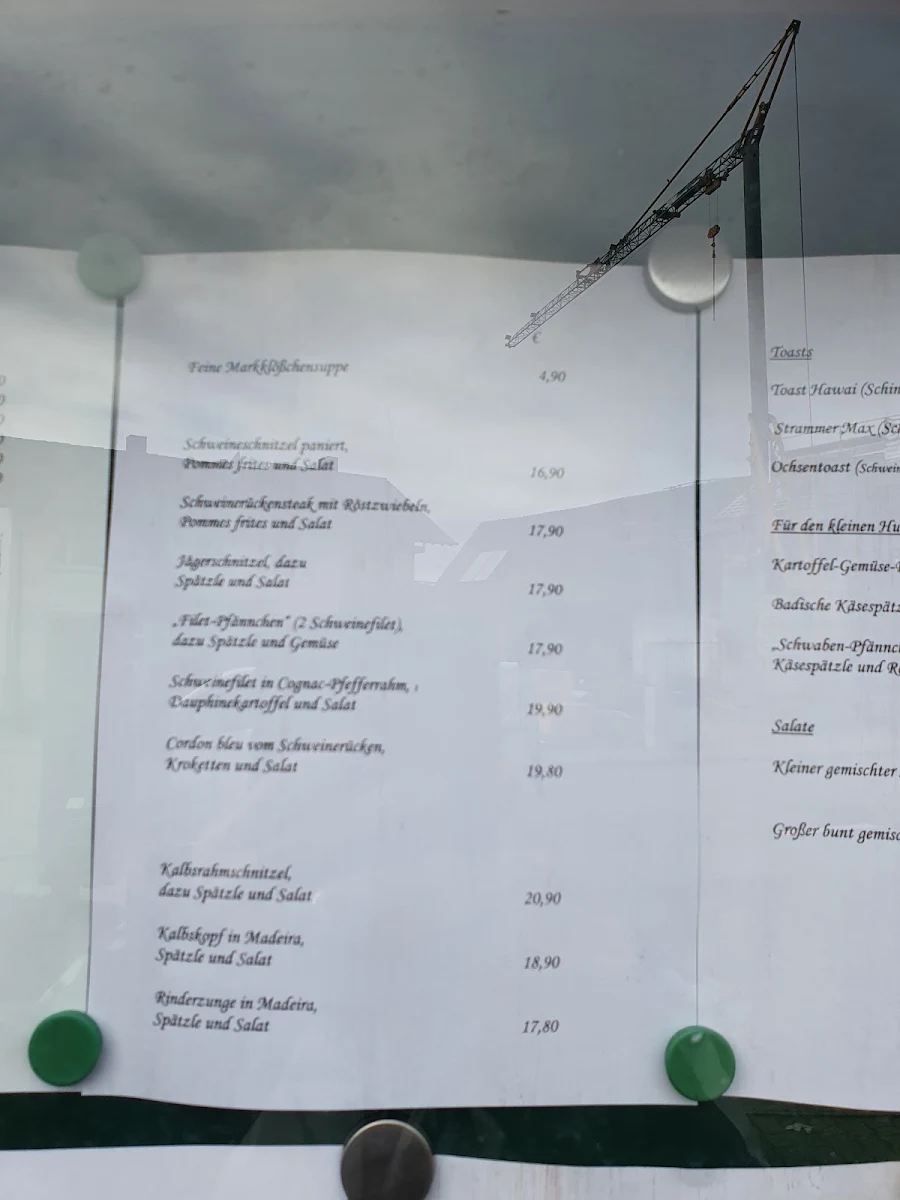 €
Feine Markklößchensuppe 4,90
Schweineschnitzel paniert,
Pommes frites und Salat 16,90
Schweinerückensteak mit Röstzwiebeln,
Pommes frites und Salat 17,90
Jägerschnitzel, dazu
Spätzle und Salat 17,90
„Filet-Pfännchen“ (2 Schweinefilet),
dazu Spätzle und Gemüse 17,90
Schweinefilet in Cognac-Pfefferrahm,
Dauphinekartoffel und Salat 19,90
Cordon bleu vom Schweinerücken,
Kroketten und Salat 19,80
Kalbsrahmschnitzel,
dazu Spätzle und Salat 20,90
Kalbskopf in Madeira,
Spätzle und Salat 18,90
Rinderzunge in Madeira,
Spätzle und Salat 17,80
Toasts
Toast Hawai (Schin
Strammer Max (Sc
Ochsentoast (Schwein
Für den kleinen Hu
Kartoffel-Gemüse-
Badische Käsespätz
„Schwaben-Pfännc
Käsespätzle und R
Salate
Kleiner gemischter
Großer bunt gemisc